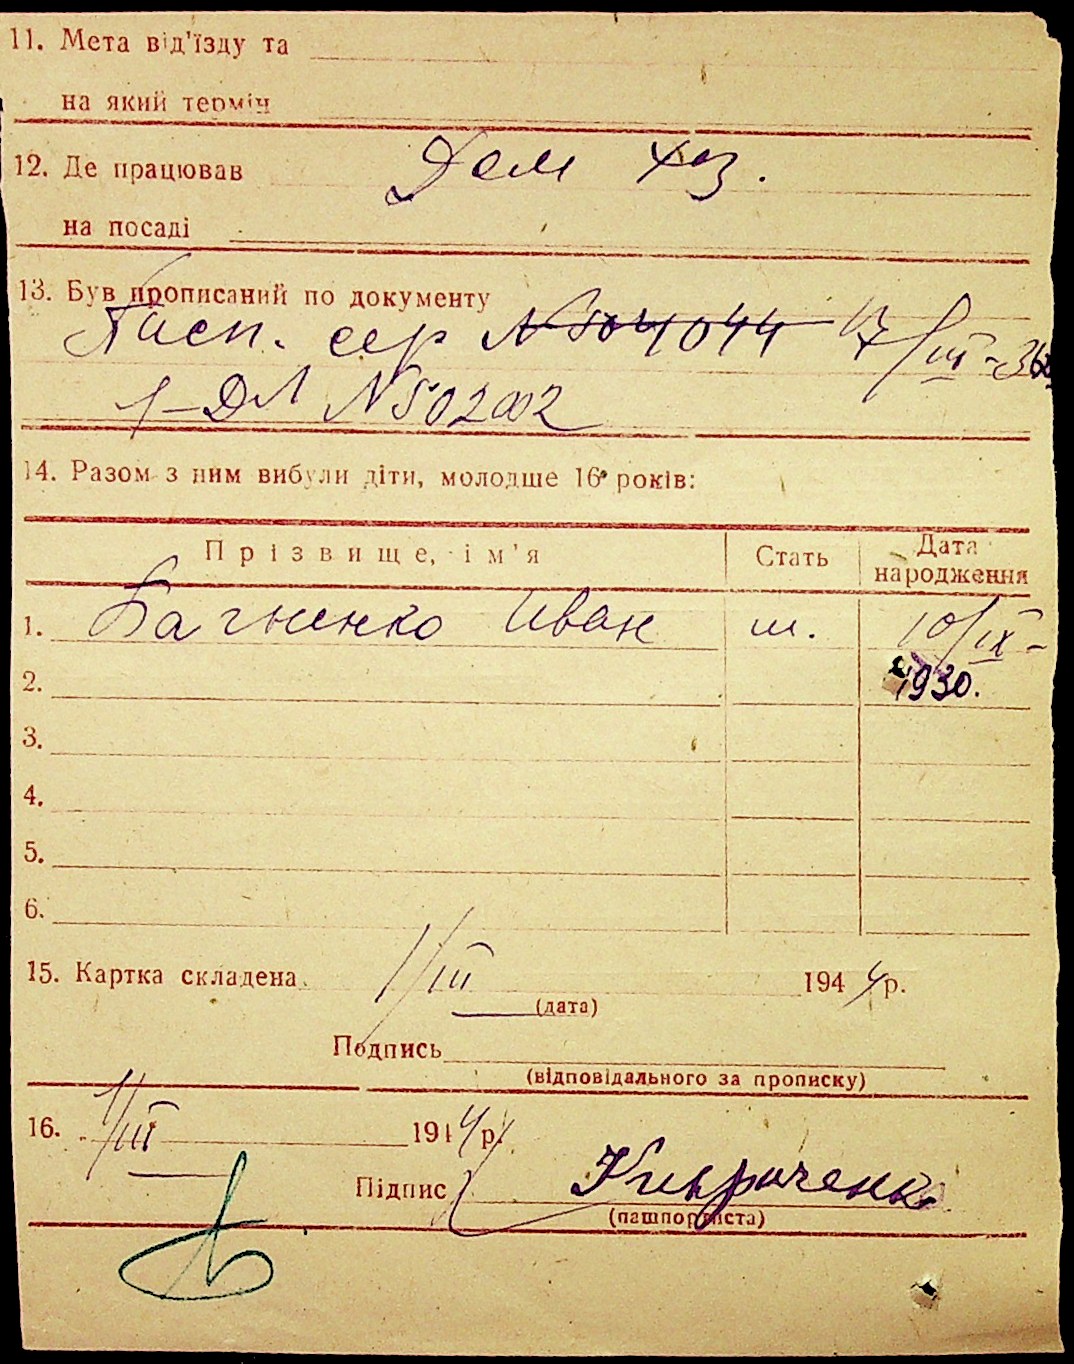 11. Мета від'їзду та
на який термін
12. Де працював Дом хоз.
на посаді
13. Був прописаний по документу
Пасп. сер № 504044 17/III-36
1-ДЛ №502002
14. Разом з ним вибули діти, молодше 16 років:
Прізвище, ім'я Стать Дата народження
1. Багненко Иван м. 10/IX-
2. 1930.
3.
4.
5.
6.
15. Картка складена 1/III 1944 р.
(дата)
Подпись
(відповідального за прописку)
16. 1/III 1944 р.
Підпис
(пашпортиста)